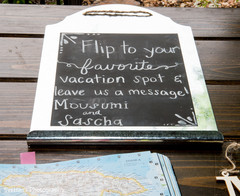 Flip to your
favorite
vacation spot &
leave us a message!
Mousumi
and
Sascha